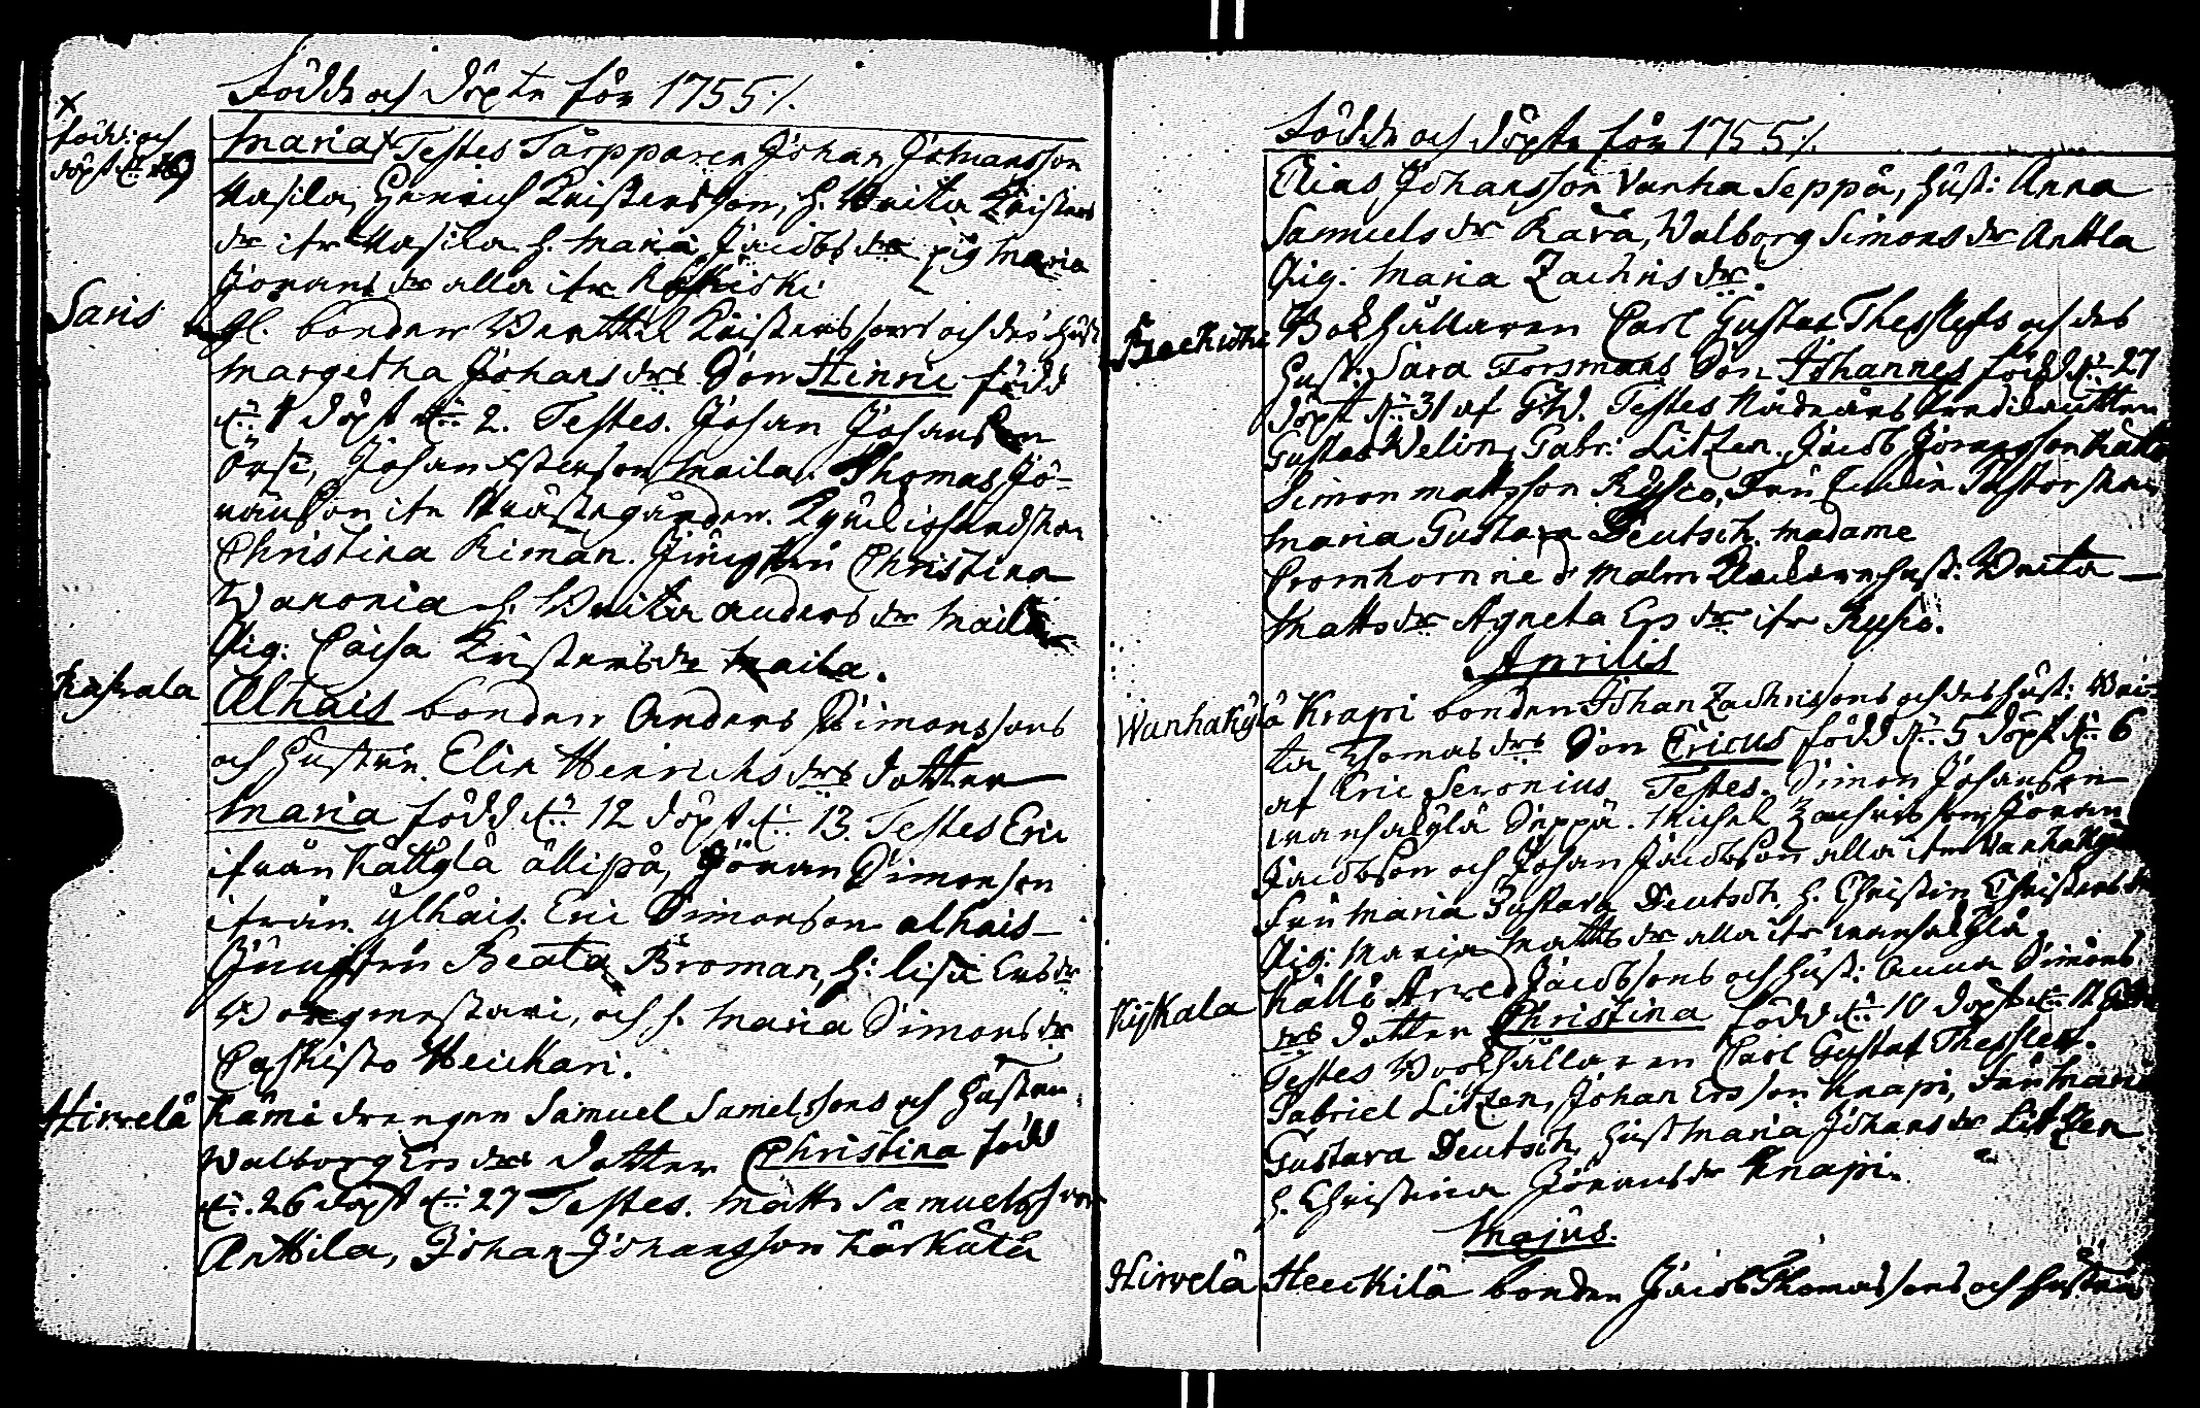 Födde och döpte för 1755 ./.
x
född: och
döpt d:
Maria x Testes Tårpparen Johan Johansson
Masila, Henrich Kristersson, h. Brita Kristers
dr ifr Masila h. Maria Jacobs dr pig Maria
Jörans dr alla ifr
Saris
gl. bonden Berttil Kristerssons och des hust
Margetha Johans drs Son Hinric född
d: 1 döpt d: 2. Testes. Johan Johansson
Örsi, Johan Maila. Thomas Jö-
ransson ifr Prästegården.
Christina Kiman. Jungfru Christina
Wanonia h. Brita Anders dr Maila
Pig: Caisa Kristers dr Maila.
Kaskala
Alhais bonden Anders Simonssons
och Hustru. Elin Henrichs drs dotter
Maria född d: 12 döpt d: 13. Testes Eric
ifrån Kåttÿlä ällipä, Jöran Simonson
ifrån ÿlhäis. Eric Simonson alhais
Jungfru Beata Broman, h: Lisa Ers dr
och h. Maria Simons dr
Heickari.
Hirvelä
Kämi drengen Samuel Samelssons och Hustru
Walborg Ers drs dotter Christina född
d: 26 döpt d: 27 Testes. Matts Samuelsson
Anttila, Johan Johansson Kärkulä
Födde och döpte för 1755 ./.
Elias Johansson Vanha Seppä, hust: Anna
Samuels dr Kara, Walborg Simons dr Anttla
Pig: Maria Zachris dr.
Bokhållaren Carl Gustaf Thesslefs och des
Hust: Sara Forsmans Son Johannes född d: 27
döpt d: 31 af G.W. Testes
Gustaf Welin, Gabr: Litzen. Jacob Jöransson
Simon Mattsson Rÿsco, Fru
Maria Gustava Deutsch. Madame
Cromhorn née Malm hust: Brita
Matts dr Agneta Ers dr ifr Rysco.
Aprilis
Wanhakÿlä
Krapi bonden Johan Zachrissons och des hust: Bri-
ta Thomas drs Son Ericus född d: 5 döpt d: 6
af Eric Seronius Testes. Simon Johansson
wanhakÿlä Seppä. Michel Zachrisson, Jöran
Jacobson och Johan Jacobson alla ifr Wanhakÿ
Fru Maria Gustava Deutsch, h. Christin Christers dr
Pig: Maria Matts dr alla ifr wanhakÿlä.
Kÿskala
Källö Arved Jacobssons och Hust: Anna Simons
drs dotter Christina född d: 10 döpt d: 11
Testes Bookhållaren Carl Gustaf Thessleff.
Gabriel Litzen, Johan Ersson Knapi, Fru Maria
Gustava Deutsch, hust Maria Johans dr Litzen
h. Christina Jörans dr Knapi.
Majus.
Hirvelä
Heickilä bonden Jacob Thomassons och hustrus